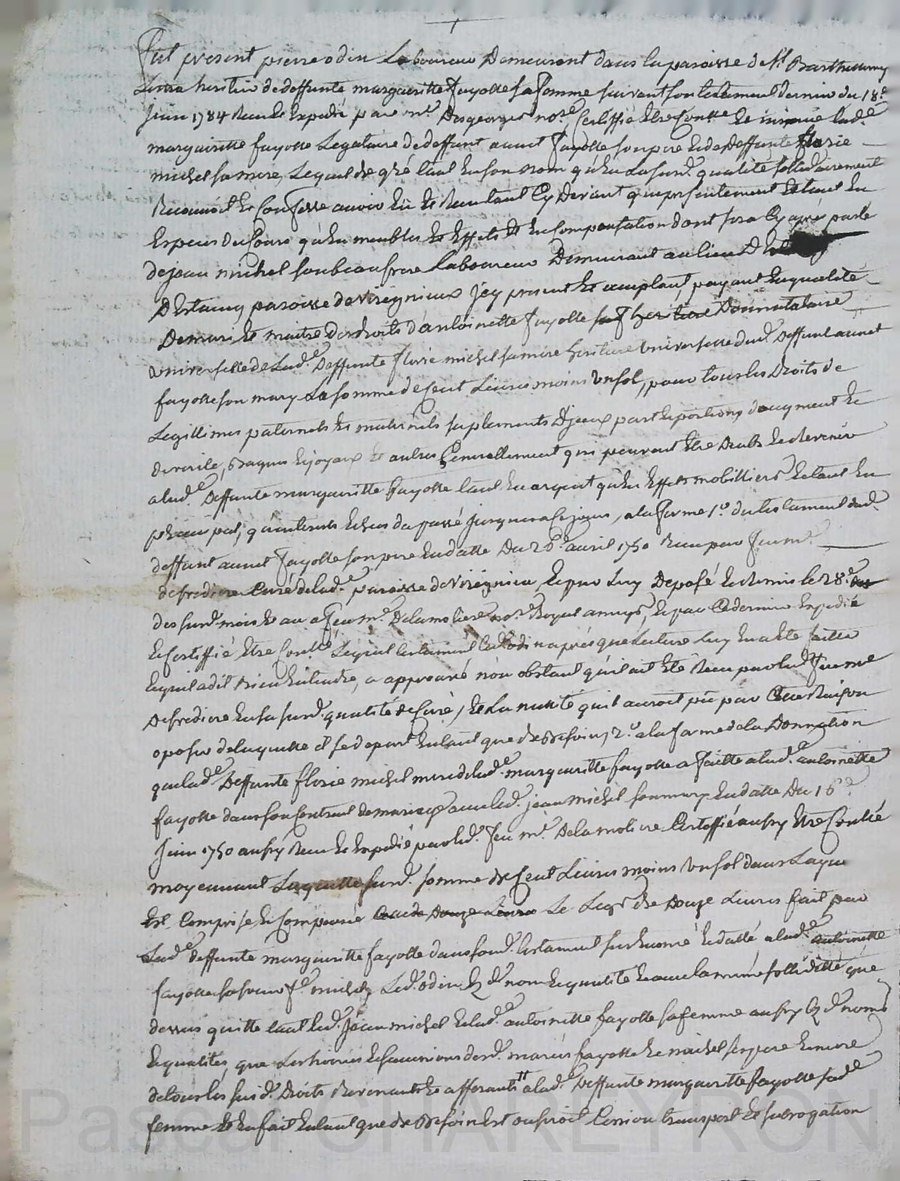 Fut present pierre odin Laboureur Demeurant dans la paroisse de St. Barthelemy
Lestra heritier de deffunte margueritte fayolle sa femme suivant son testament dernier du 18e
Juin 1784 Receu et Expedié par me. Desgeorges nore. Certiffié Etre Conllé et icelle lade
marguerite fayolle Legataire de deffunt annet fayolle son pere et de deffunte florie
michel sa mere, Lequel de gré tant En son nom qu'En La susd. qualité sollidairement
Reconnoit Et Confesse avoir Eu Et Receu tant Cy Devant que presentement Et tant En
Especes du Cours qu'En meubles Et Effets Et En Compensation dont sera Cy aprés parlé
de Jean michel son beau frere Laboureur Demeurant au lieu D
D'Estaing paroisse de Virignieux Jcy present Et acceptant payant En qualité
De mari Et maitre Des droits d'antoinette fayolle Donnataire
universelle de Lade. Deffunte florie michel sa mere heritiere universelle dud. Deffunt annet
fayolle son mary La somme de Cent Livres moins un sol, pour tous les Droits de
Legittimes paternels Et maternels suplements D'jceux part Et portions d'augment Et
de virile, bagues Et joyaux Et autres Generallement qui peuvent Etre Deubs Et Revenir
a lade. Deffunte marguerittte fayolle tant En argent qu'En Effets mobilliers Et tant En
principal, qu'interets Echus du passé jusques a Ce jour, a la forme 1o. du testament dud.
deffunt annet fayolle son pere En datte Du 26e. avril 1750 Receu par feu me.
defredière Curé de Lade. paroisse de Virignieu, Et par Luy Deposé Et Remis le 28e.
des susd. mois Et an a feu me. Delamoliere nore. Royal a , Et par Ce dernier Expedié
Et Certiffié, Etre Conllé Lequel testament Led. odin aprés que Lecture luy En a Eté faitte
Lequel a dit bien Entendre, a approuvé non obstant qu'il ait Eté Receu par led. feu me
Defrediere En sa susd. qualité de Curé, Et La nullité qu'il auroit pû par Cette Raison
oposer de laquelle il se depart En tant que de Besoin, 2o. a la forme de la Donnation
que lade. Deffunte florie michel mere de lade. marguerittte fayolle a faitte a lade. antoinette
fayolle dans son Contrat de mariage avec led. jean michel son mary En datte Du 16e.
Juin 1750 aussy Receu Et Expedié par led. feu me. Delamoliere Certiffié aussy Etre Conllé
moyennant Laquelle susd. somme de Cent Livres moins un sol dans Laque
Est Comprise Et Compensée Le Legs de Douze Livres fait par
Lade. deffunte marguerittte fayolle dans sond. testament sus Enoncé Et datté a lade. antoinette
fayolle sa soeur fe. michel, Led. odin Ez de. nom Et qualité Et avec la même sollidité que
dessus quitte tant led. Jean michel Et lade. antoinette fayolle sa femme aussy Ez de. noms
Et qualités, que Les hoiries Et successions desd. mariés fayolle Et michel ses pere Et mere
de tous les susd. Droits Revenants Et afferants a lade. Deffunte marguerittte fayolle sade
femme Et En fait En tant que de Besoin Est au profit Cession transport Et subrogation
Pascal CHAREYRON